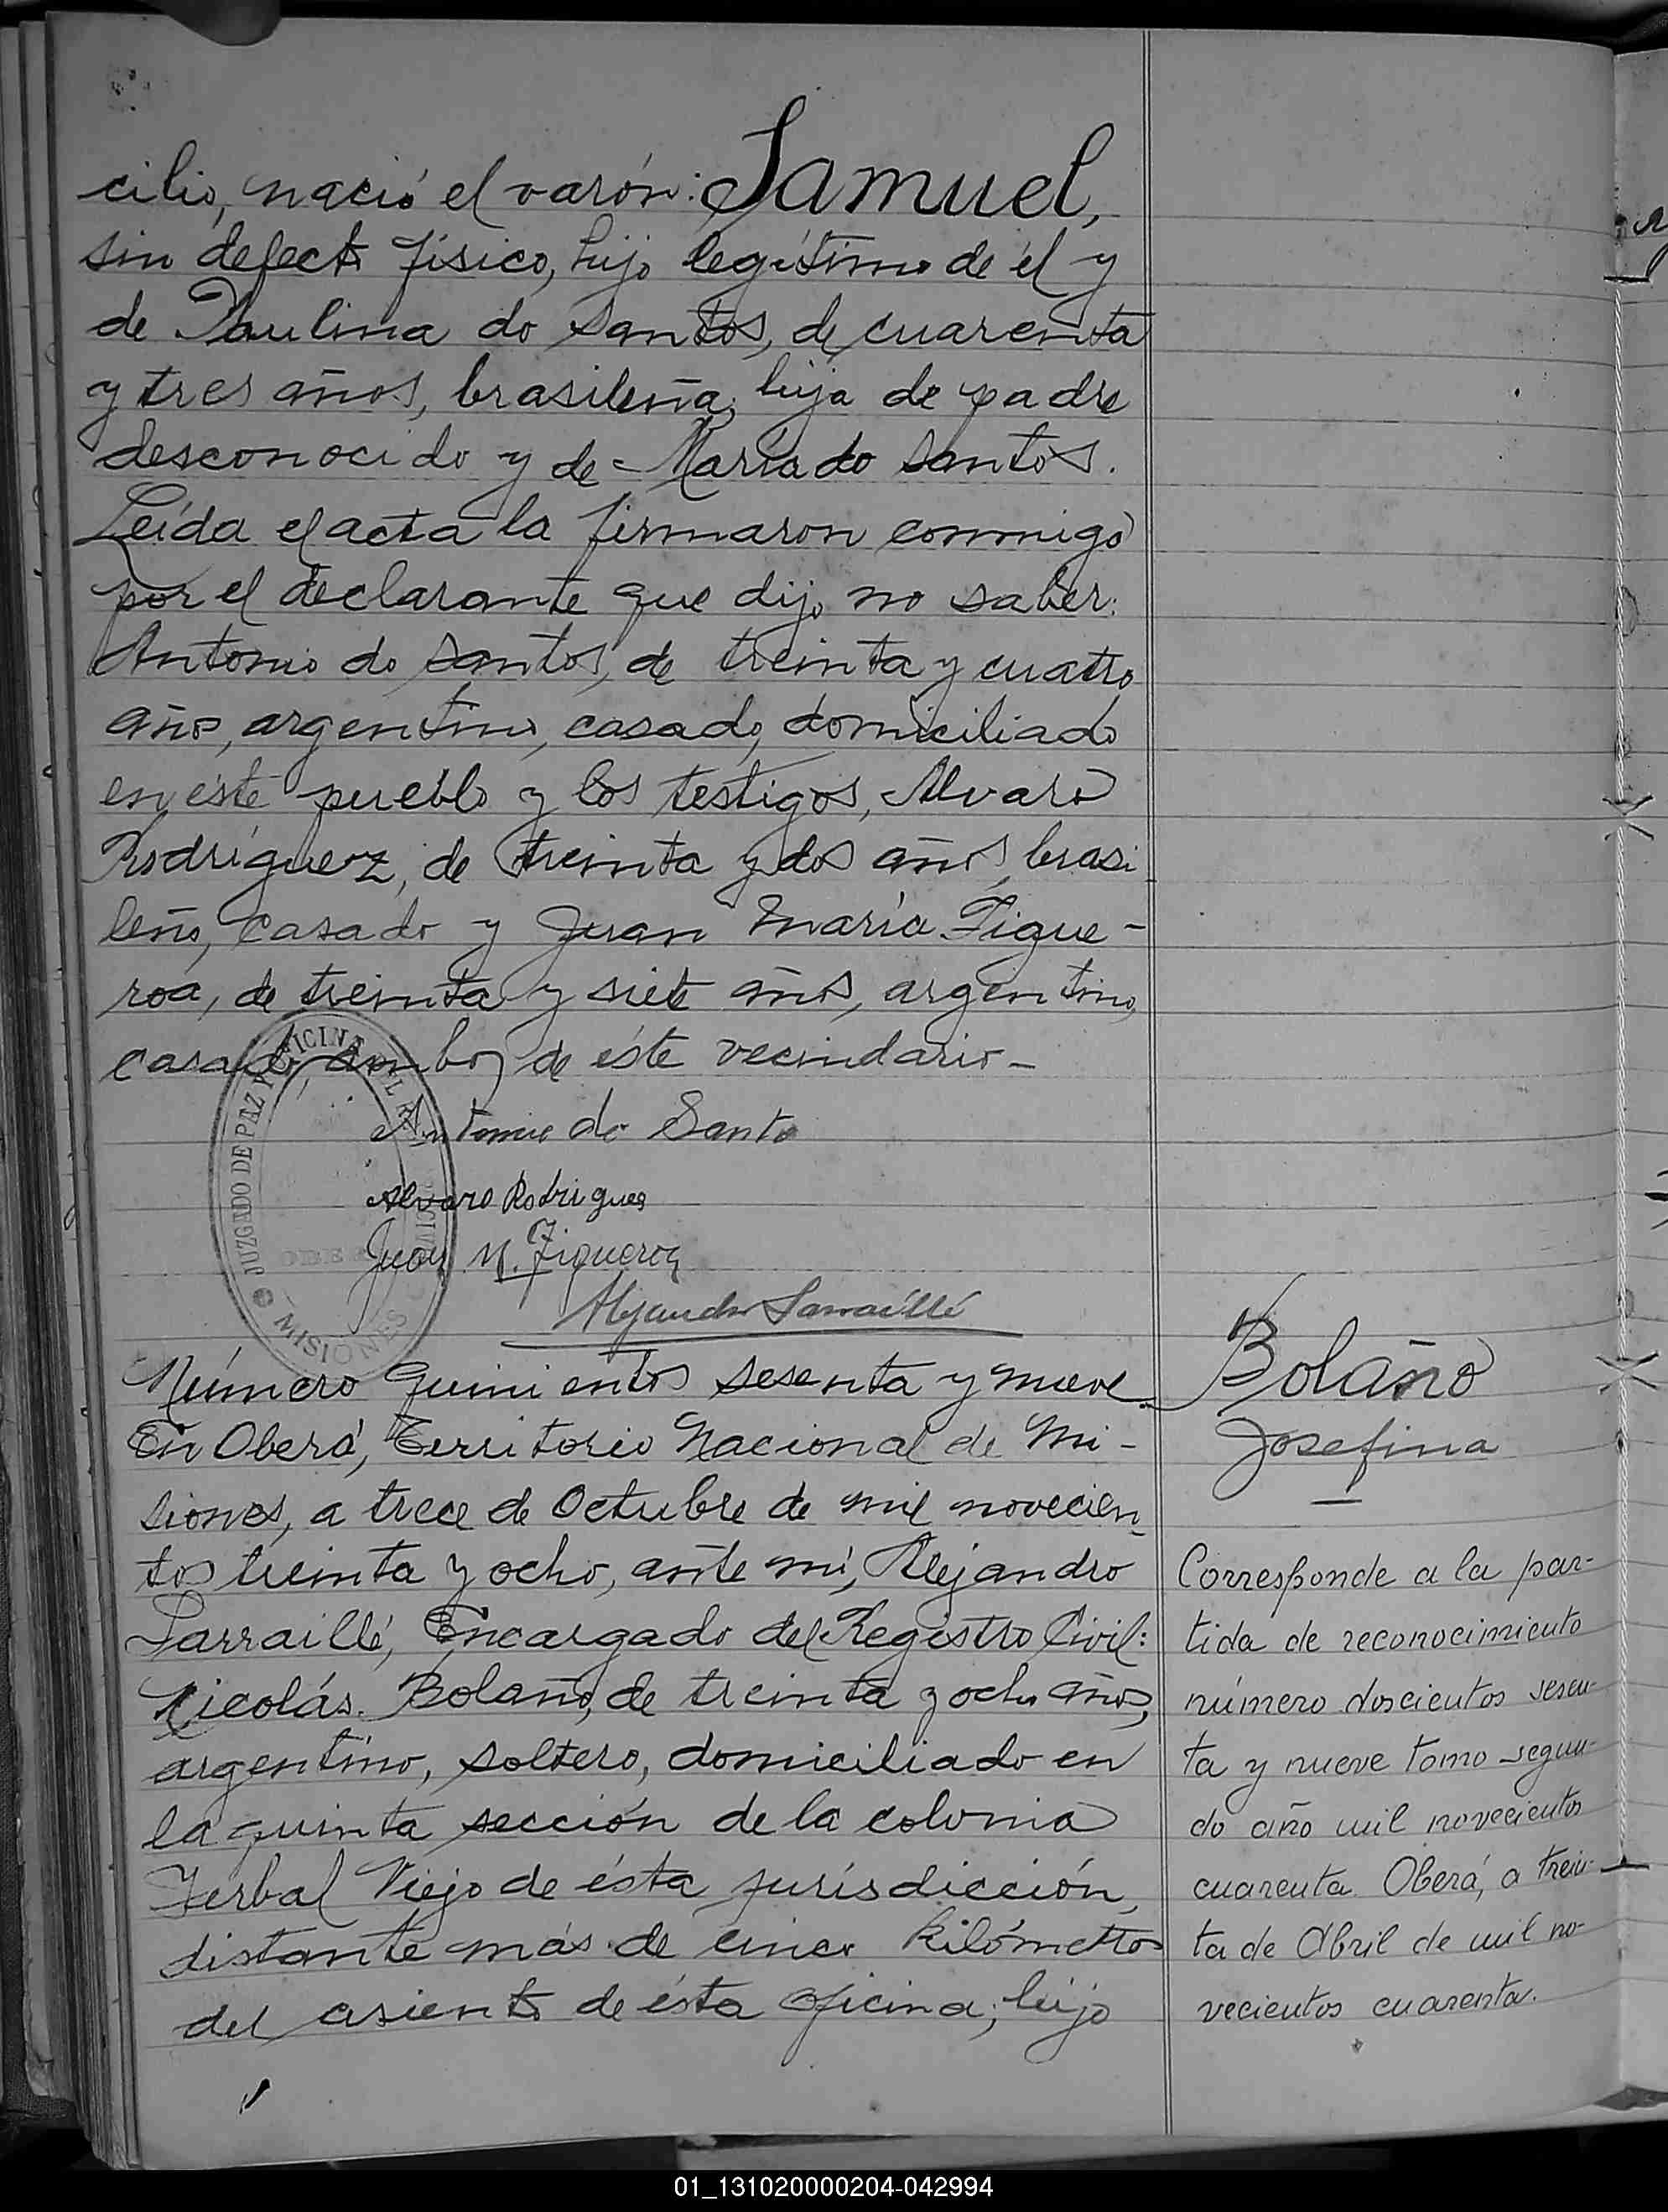 cilio, nació el varón: Samuel,
sin defecto físico, hijo legítimo de él y
de Paulina do Santos, de cuarenta
y tres años, brasileña, hija de padre
desconocido y de María do Santos.
Leída el acta la firmaron conmigo
por el declarante que dijo no saber:
Antonio do Santos, de treinta y cuatro
años, argentino, casado, domiciliado
en éste pueblo y los testigos, Alvaro
Rodríguez, de treinta y dos años, brasi
leño, casado y Juan María Figue-
roa, de treinta y siete años, argentino,
casado, ambos de éste vecindario-
Antonio do Santo
Alvaro Rodrigues
Juan M. Figueroa
Alejandro Larraillé
JUZGADO DE PAZ Y OFICINA DEL
MISIONES
Número quinientos sesenta y nueve
En Oberá, Territorio Nacional de Mi-
siones, a trece de Octubre de mil novecien
tos treinta y ocho, ante mí, Alejandro
Larraillé, Encargado del Registro Civil:
Nicolás Bolaño, de treinta y ocho años,
argentino, soltero, domiciliado en
la quinta sección de la colonia
Yerbal Viejo de ésta jurisdicción,
distante más de cinco kilómetros
del asiento de ésta oficina; hijo
Bolaño
Josefina
Corresponde a la par-
tida de reconocimiento
número doscientos sesen-
ta y nueve tomo segun-
do año mil novecientos
cuarenta. Oberá, a trein-
ta de Abril de mil no-
vecientos cuarenta.
01_131020000204-042994